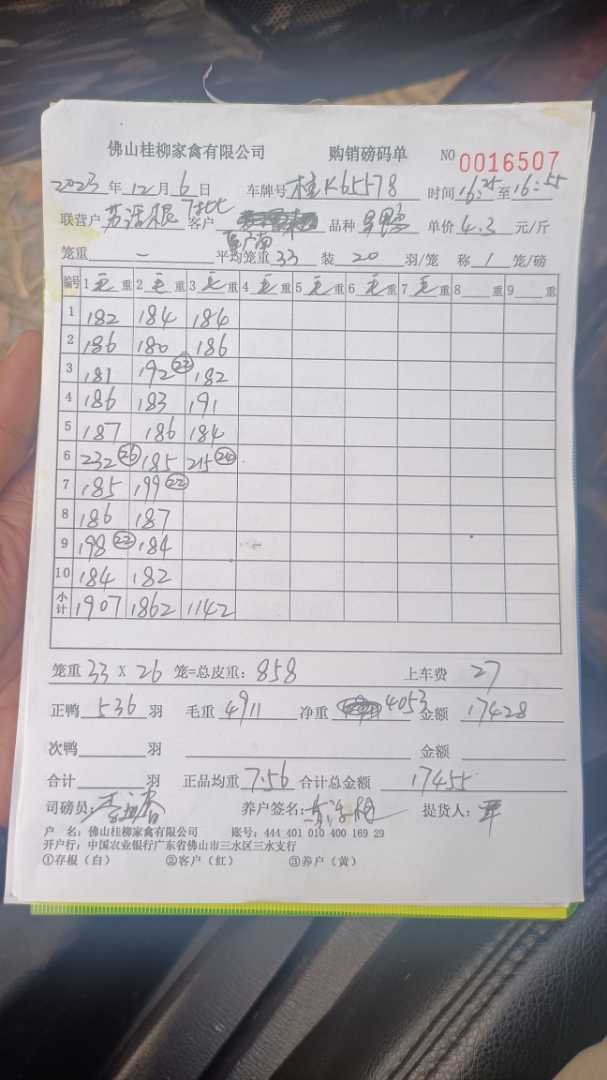 佛山桂柳家禽有限公司 购销磅码单 NO 0016507
2023 年 12 月 6 日 车牌号 桂K65578 时间 16:25 至 16:55
联营户 客户 品种 单价 4.3 元/斤
笼重 — 平均笼重 33 装 20 羽/笼 称 1 笼/磅
编号 1 毛 重 2 毛 重 3 毛 重 4 毛 重 5 毛 重 6 毛 重 7 毛 重 8 重 9 重
1 182 184 184
2 186 180 186
3 181 192 23 182
4 186 183 191
5 187 186 184
6 232 26 185 215 24
7 185 199 22
8 186 187
9 198 22 184
10 184 182
小计 1907 1862 1142
笼重 33 X 26 笼=总皮重: 858 上车费 27
正鸭 536 羽 毛重 4911 净重 4053 金额 17428
次鸭 羽 金额
合计 羽 正品均重 7.56 合计总金额 17455
司磅员: 养户签名: 提货人:
户 名: 佛山桂柳家禽有限公司 账号: 444 401 010 400 169 29
开户行: 中国农业银行广东省佛山市三水区三水支行
①存根(白) ②客户(红) ③养户(黄)